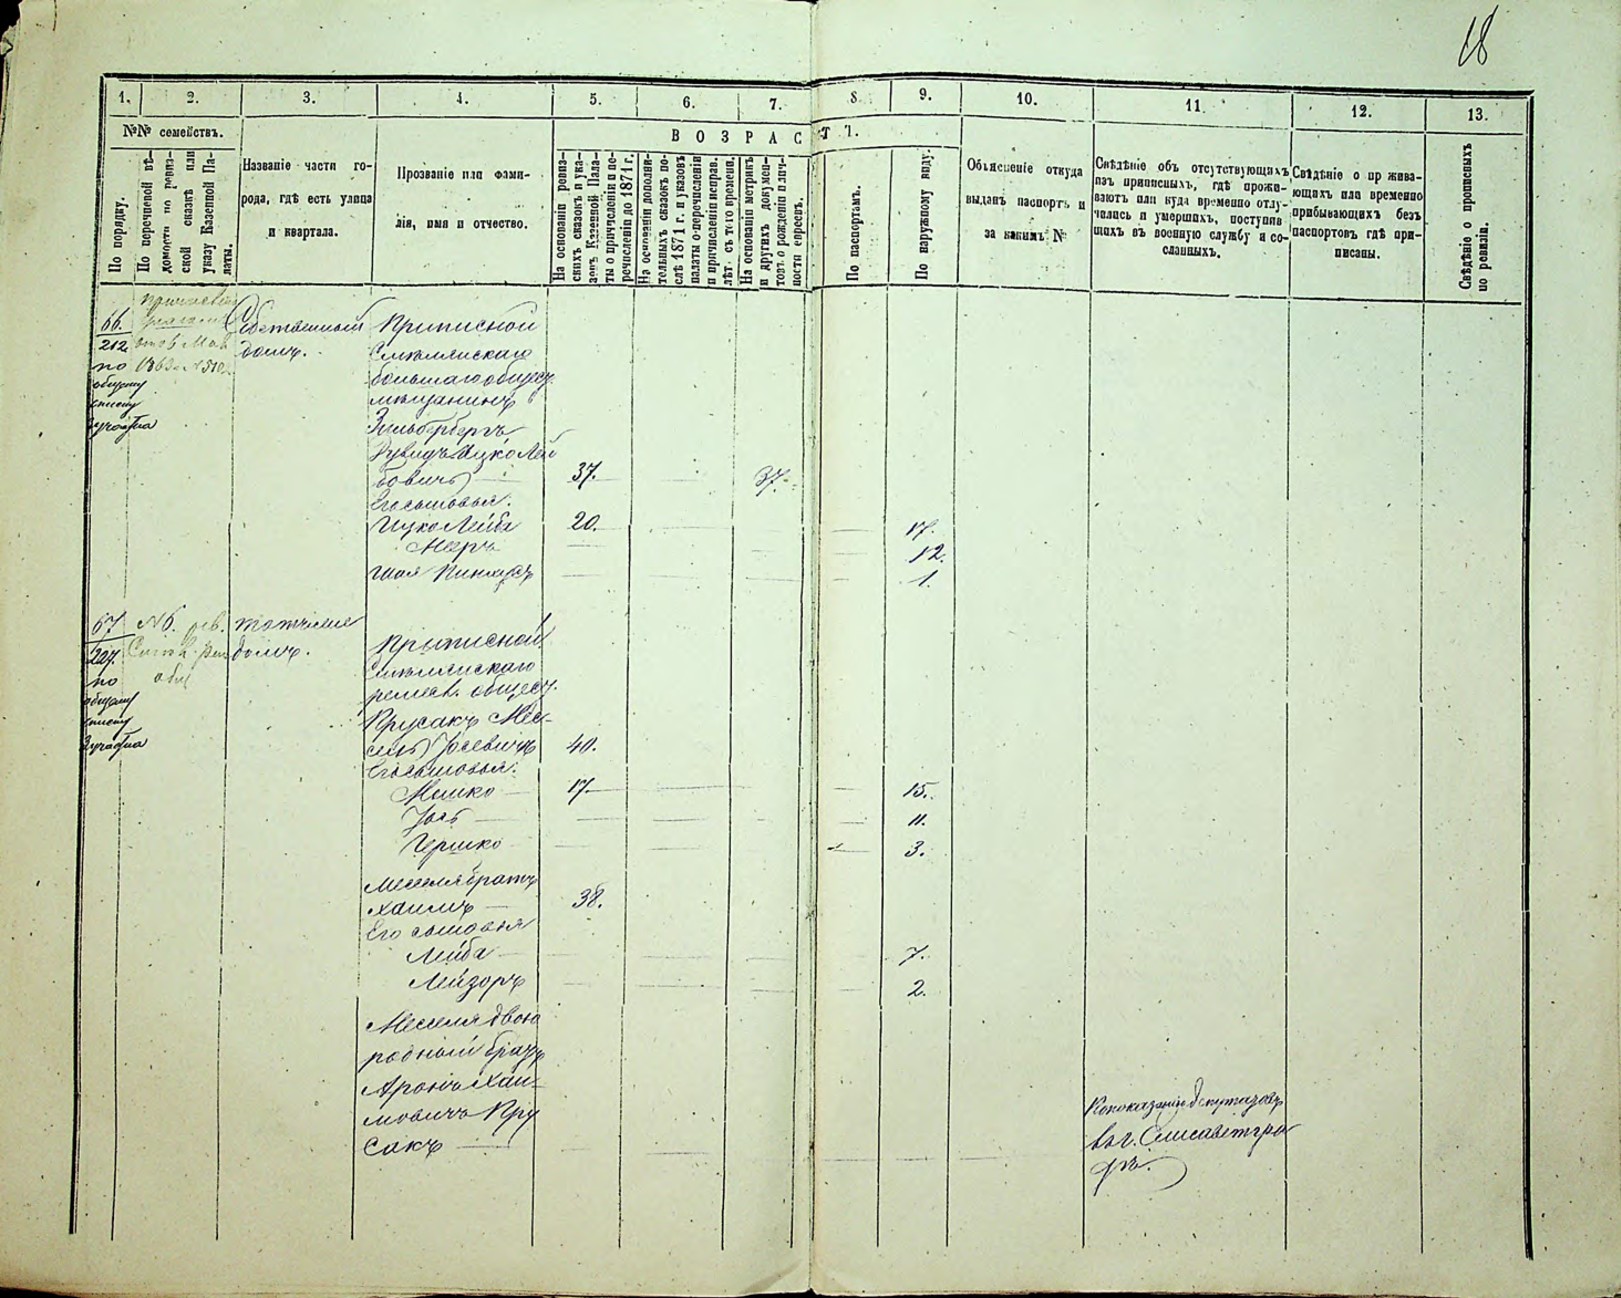 18
1. 2. 3. 4. 5. 6. 7. 8. 9. 10. 11. 12. 13.
№№ семействъ.
По порядку.
По перечневой вѣ-
домости по ревиз-
ской сказкѣ или
указу Казенной Па-
латы.
Названіе части го-
рода, гдѣ есть улица
и квартала.
Прозваніе или фами-
лія, имя и отчество.
ВОЗРАСТЪ.
На основаніи ревиз-
скихъ сказокъ и ука-
зовъ Казенной Пала-
ты о причисленіи и пе-
речисленіи до 1871 г.
На основаніи дополни-
тельныхъ сказокъ по-
слѣ 1871 г. и указовъ
палаты о перечисленіи
и причисленіи исправ.
лѣт. съ того времени.
На основаніи метрикъ
и другихъ докумен-
товъ о рожденіи и лич-
ности евреевъ.
По паспортамъ.
По наружному виду.
Объясненіе откуда
выданъ паспортъ и
за какимъ №
Свѣдѣніе объ отсутствующихъ
изъ приписныхъ, гдѣ прожи-
ваютъ или куда временно отлу-
чились и умершихъ, поступив
шихъ въ военную службу и со-
сланныхъ.
Свѣдѣніе о пр жива-
ющихъ или временно
прибывающихъ безъ
паспортовъ гдѣ при-
писаны.
Свѣдѣніе о прописныхъ
по ревизіи.
66.
212
по
общему
списку
3 участка
1863 г. №
Собственный
домъ.
Приписной
Смѣлянскаго
большаго общес.
мѣщанинъ
Зильбербергъ
Дувидъ Ицко Лей
бовичъ 37. 37.
Его сыновья:
Ицко Лейба 20. 17.
Мееръ 12.
Шая Пинхусъ 1.
67.
227.
по
общему
списку
3 участка
№ 6. рев.
домъ.
Приписной
Смѣлянскаго
ремесл. общес.
Прусакъ Мес-
сель Іосевичъ 40.
Его сыновья:
Мошко 17. 15.
Іось 11.
Гершко 3.
Месселя братъ
Хаимъ 38.
Его сыновья
Лейба 7.
Лейзоръ 2.
Месселя двою
родный братъ
Аронъ Хаи-
мовичъ Пру
сакъ
По показанію депутатовъ
въ г. Елисаветгра
дѣ.